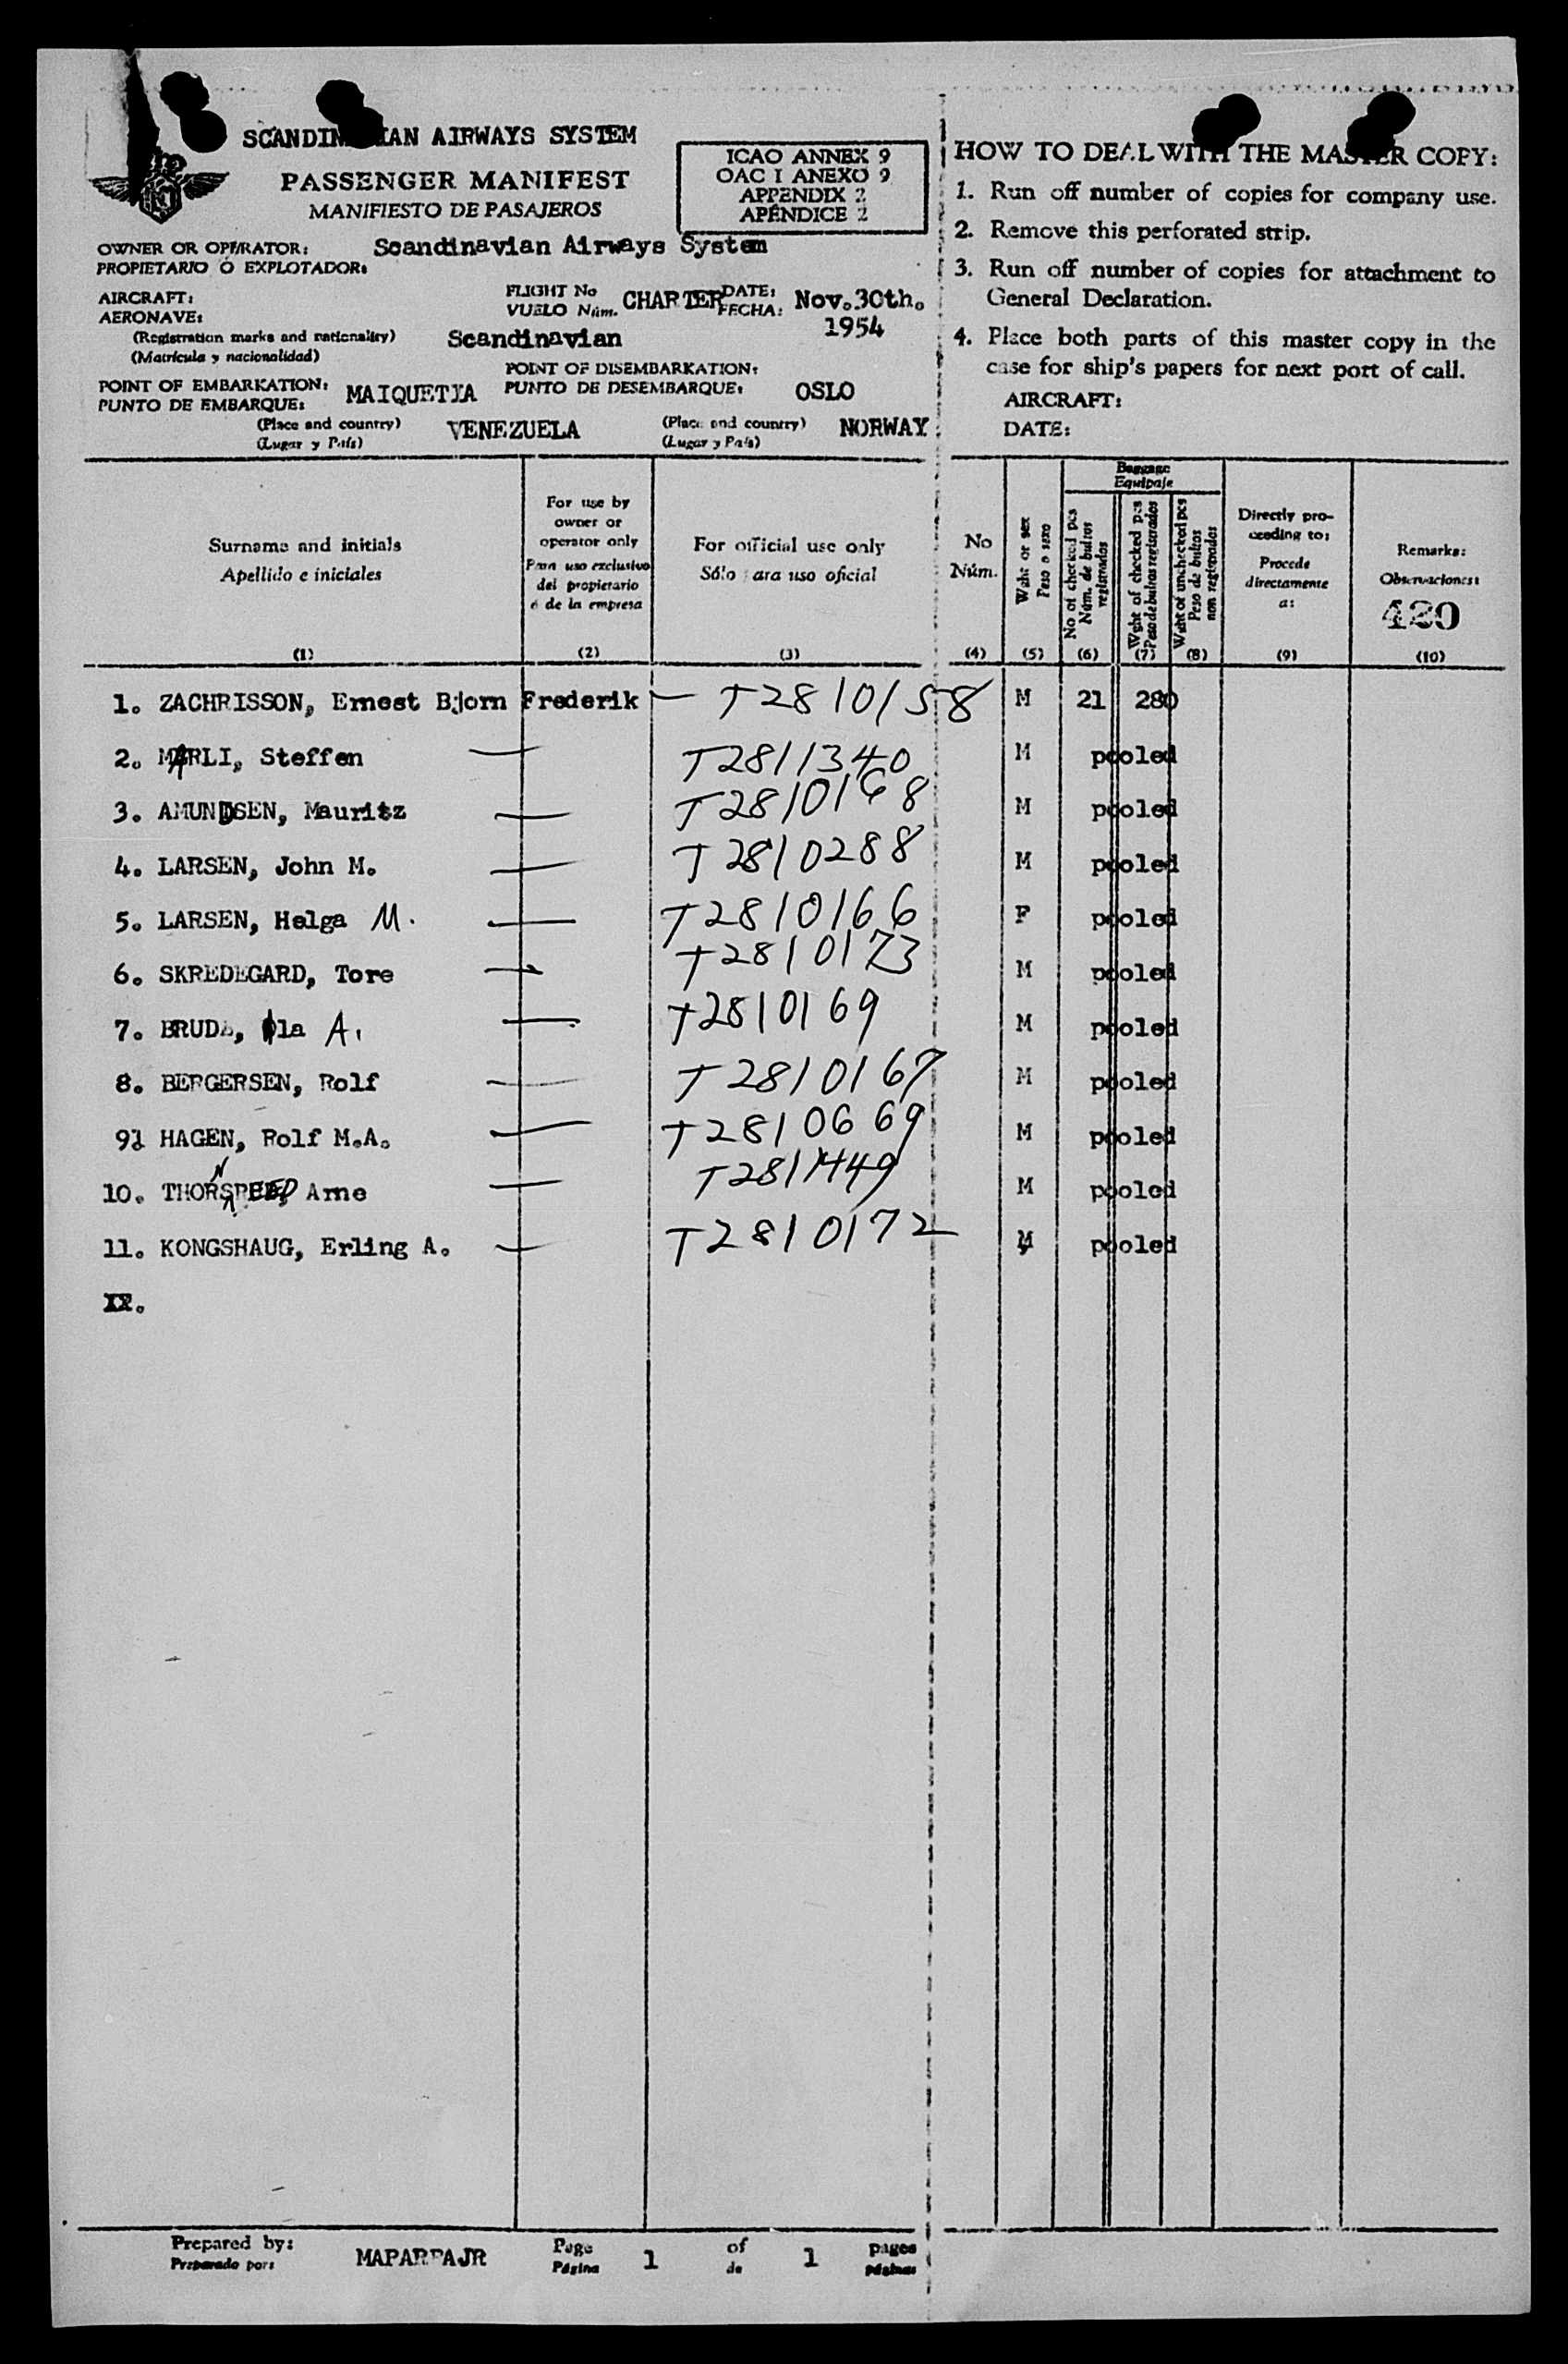 SCANDINAVIAN AIRWAYS SYSTEM
PASSENGER MANIFEST
MANIFIESTO DE PASAJEROS
ICAO ANNEX 9
OAC I ANEXO 9
APPENDIX 2
APÉNDICE 2
OWNER OR OPERATOR: Scandinavian Airways System
PROPIETARIO Ó EXPLOTADOR:
AIRCRAFT:
AERONAVE:
FLIGHT No
VUELO Núm. CHARTER
DATE:
FECHA: Nov.30th.
1954
(Registration marks and nationality) Scandinavian
(Matrícula y nacionalidad)
POINT OF EMBARKATION:
PUNTO DE EMBARQUE: MAIQUETIA
POINT OF DISEMBARKATION:
PUNTO DE DESEMBARQUE: OSLO
(Place and country) VENEZUELA
(Lugar y País)
(Place and country) NORWAY
(Lugar y País)
HOW TO DEAL WITH THE MASTER COPY:
1. Run off number of copies for company use.
2. Remove this perforated strip.
3. Run off number of copies for attachment to
General Declaration.
4. Place both parts of this master copy in the
case for ship's papers for next port of call.
AIRCRAFT:
DATE:
Surname and initials
Apellido e iniciales
(1)
For use by
owner or
operator only
Para uso exclusivo
del propietario
ó de la empresa
(2)
For official use only
Sólo para uso oficial
(3)
No
Núm.
(4)
Wght or sex
Peso o sexo
(5)
Baggage
Equipaje
No of checked pcs
Núm. de bultos
registrados
(6)
Wght of checked pcs
Peso de bultos registrados
(7)
Wght of unchecked pcs
Peso de bultos
non registrados
(8)
Directly pro-
ceeding to:
Procede
directamente
a:
(9)
Remarks:
Observaciones:
420
(10)
1. ZACHRISSON, Ernest Bjorn Frederik — T2810158 M 21 280
2. MARLI, Steffen — T2811340 M pooled
3. AMUNDSEN, Mauritz — T2810168 M pooled
4. LARSEN, John M. — T2810288 M pooled
5. LARSEN, Helga M. — T2810166 F pooled
6. SKREDEGARD, Tore — T2810173 M pooled
7. BRUDA, Ola A. — T2810169 M pooled
8. BERGERSEN, Rolf — T2810167 M pooled
9 HAGEN, Rolf M.A. — T2810669 M pooled
10. Arne — T2811449 M pooled
11. KONGSHAUG, Erling A. — T2810172 M pooled
Prepared by:
Preparado por: MAPARPAJR
Page
Página 1
of
de 1
pages
páginas